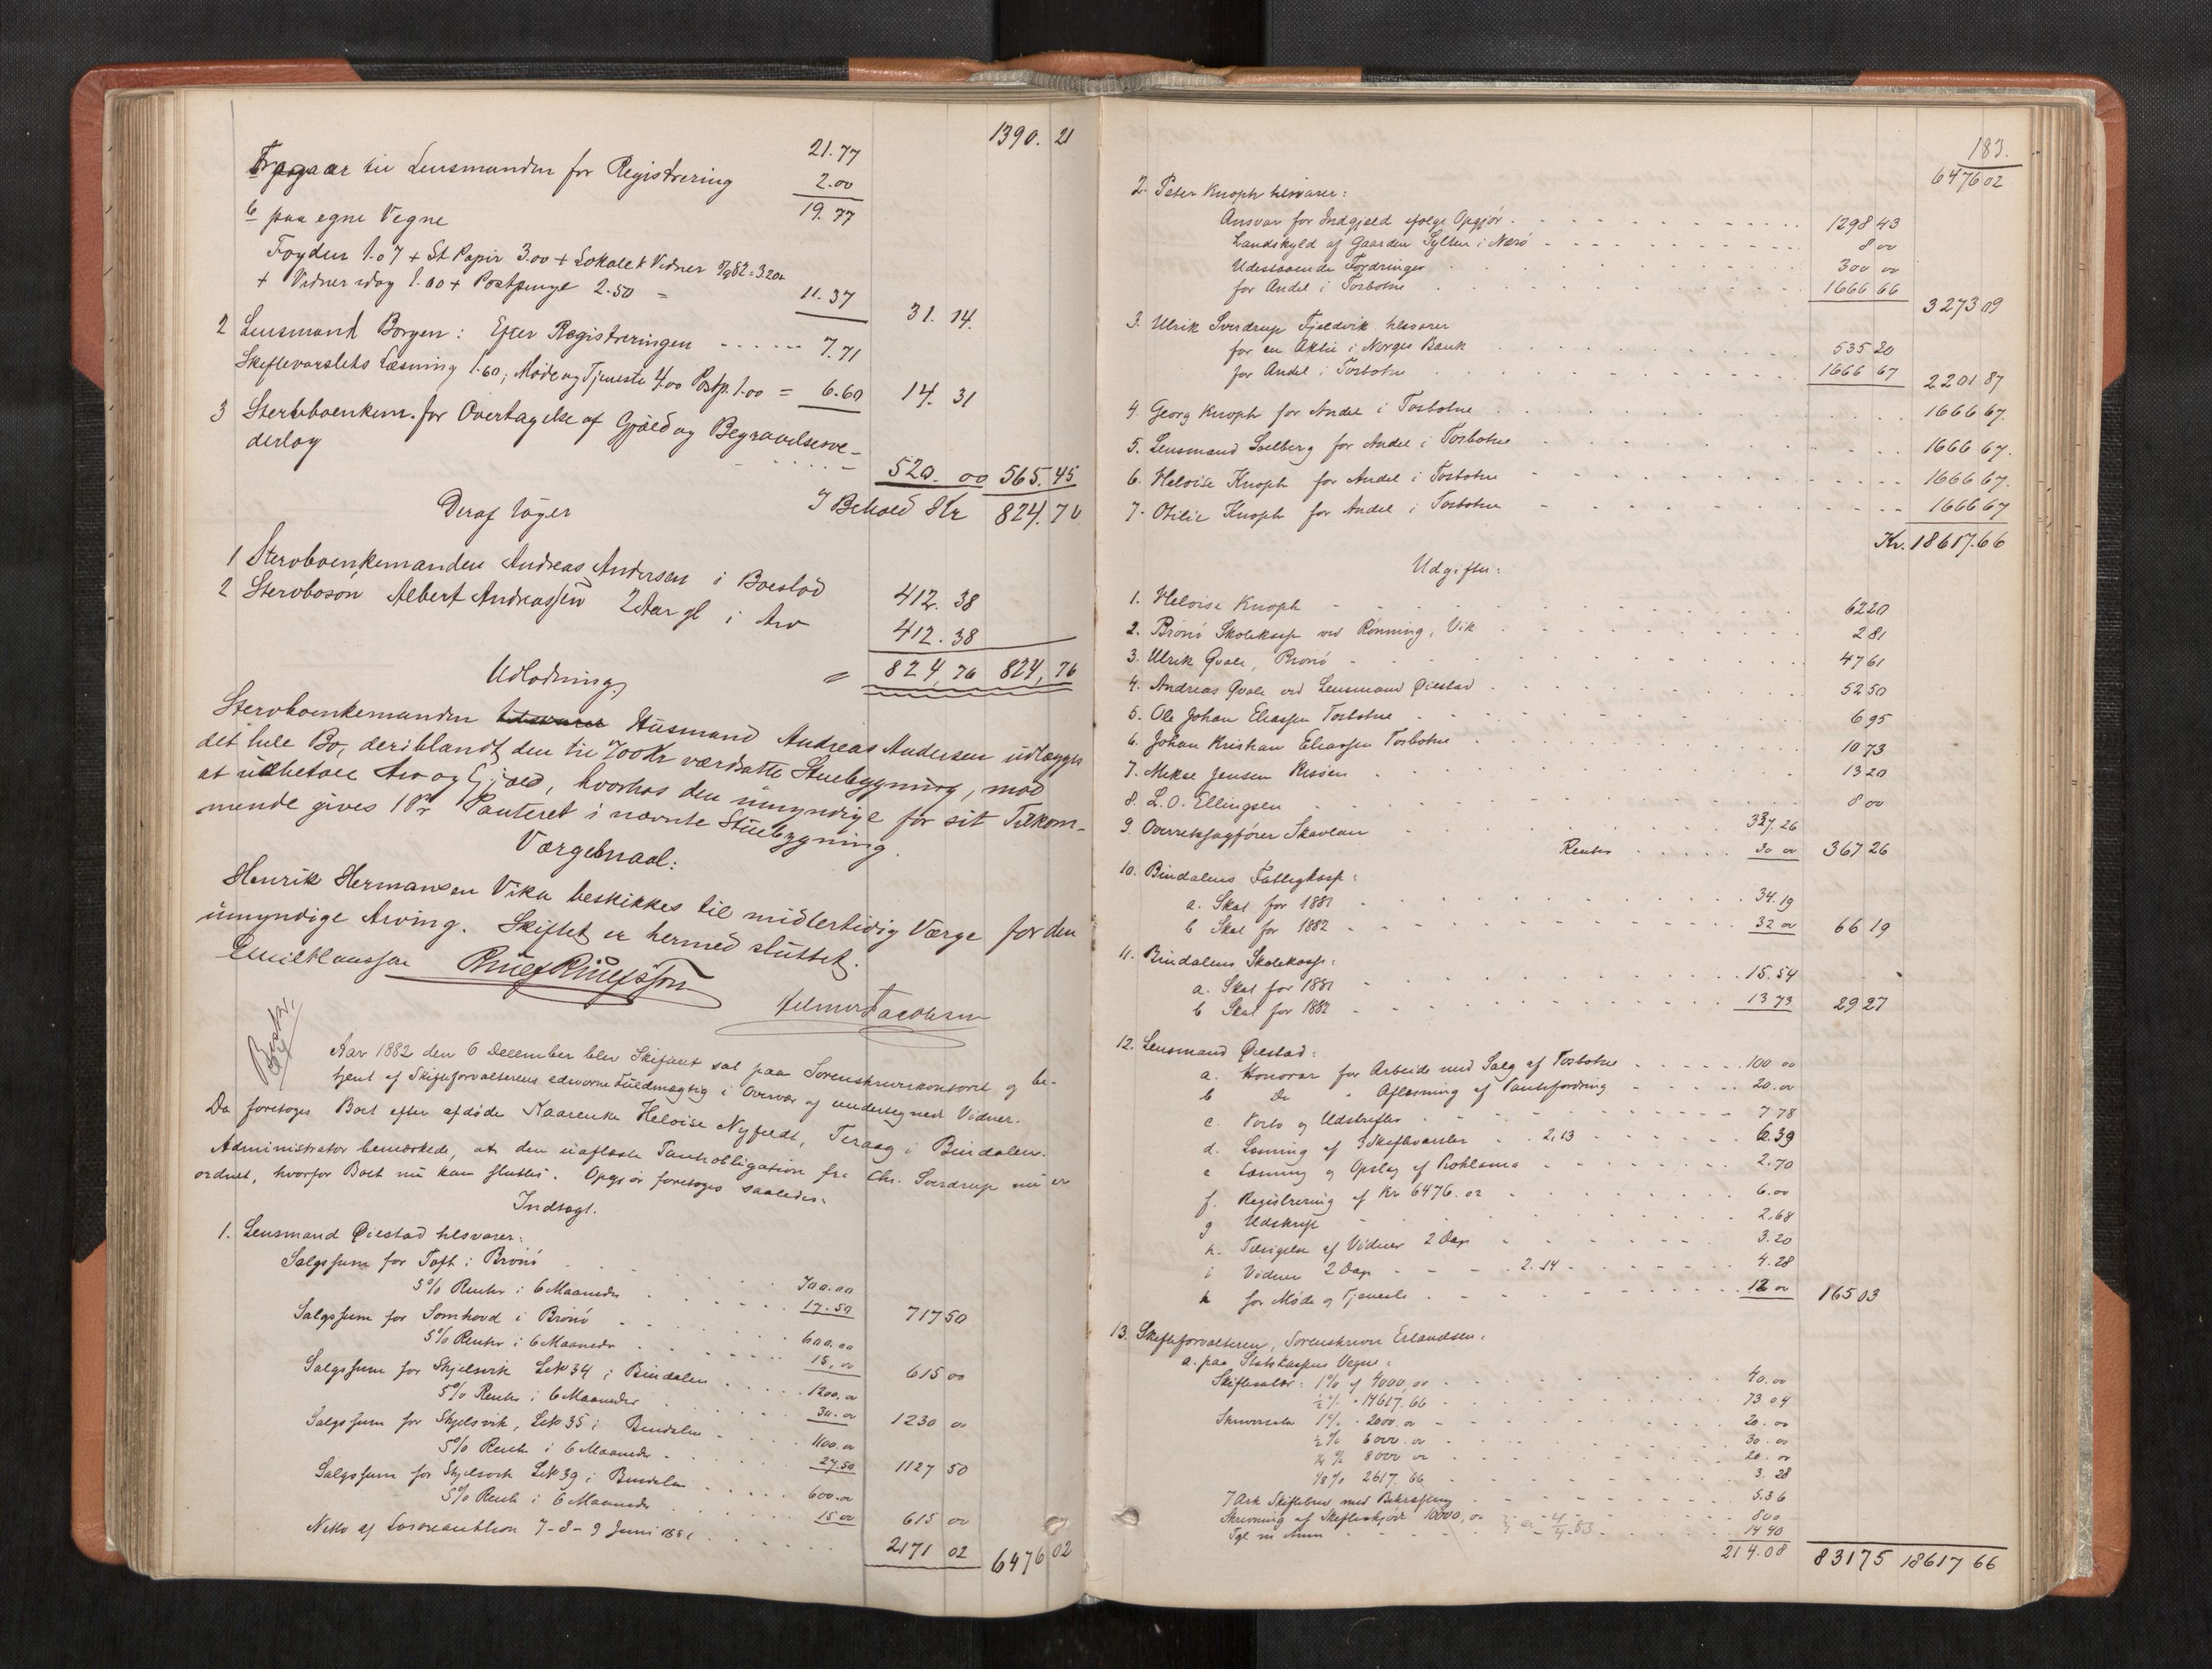 1390. 21
21.77
Fragaar til Lensmanden for Registrering 2.00
19.77
b paa egne Vegne
Fogden 1.07 + St Papir 3.00 + Lokale & Vidner 82 = 3.20
+ Vidner idag 1.00 + Postpenge 2.50 = 11.37 31. 14.
2 Lensmand Borgen: Efter Registreringen - - - - - - 7.71
Skiftevarslets Læsning 1.60; Møde og Tjeneste 4.00 Postp. 1.00 = 6.60 14. 31
3 Sterbboenkem. for Overtagelse af Gjæld og Begravelsesve-
derlag - - - - - 520. 00 565. 45
I Behold Kr 824. 76
Deraf tager
1 Stervboenkemanden Andreas Andersen i Boeslod 412. 38
2 Stervbosøn Albert Andreassen 2 Aar gl i Arv 412. 38
= 824, 76 824, 76
Udlodning,
Stervboenkemanden tilsvarer Husmand Andreas Andersen udlægges
det hele Bo, deriblandt den til 700 Kr værdsatte Stuebygning, mod
at udbetale Arv og Gjæld, hvorhos den umyndige for sit Tilkom-
mende gives 1ste Panteret i nævnte Stuebygning.
Værgemaal:
Henrik Hermansen Vika beskikkes til midlertidig Værge for den
umyndige Arving. Skiftet er hermed sluttet.
Emil Klaussen
Hilmar Jacobsen
Aar 1882 den 6 December blev Skifteret sat paa Sorenskriverkontoret og be-
tjent af Skifteforvalterens edsvorne Fuldmægtig i Overvær af undertegnede Vidner.
Da foretoges Boet efter afdøde Kaarenke Heloise Nyfeldt, Teraag i Bindalen.
Administrator bemærkede, at den uafløste Pantobligation fra Chr. Sverdrup nu er
ordnet, hvorfor Boet nu kan sluttes. Opgjør foretoges saaledes:
Indtægt.
1. Lensmand Øiestad tilsvarer:
Salgssum for Toft i Brønø . . . 700.00
5% Renter i 6 Maaneder . . . 17.50 717 50
Salgssum for Somhovd i Brønø . . . 600.00
5% Renter i 6 Maaneder . . . 15,00 615 00
Salgssum for Skjelsvik Lb№ 34 i Bindalen . . . 1200.00
5% Renter i 6 Maaneder . . . 30.00 1230 00
Salgssum for Skjelsvik, Lb№ 35 i Bindalen . . . 1100.00
5% Renter i 6 Maaneder . . . 27.50 1127 50
Salgssum for Skjelsvik Lb№ 39 i Bindalen . . . 600.00
5% Rente i 6 Maaneder . . . 15 00 615 00
Netto af Løsøreauktion 7-8-9 Juni 1881 . . . 2171 02 6476 02
183.
6476 02
2. Peter Knoph tilsvarer:
Ansvar for Indgjæld ifølge Opgjør . . . 1298 43
Landskyld af Gaarden Sylten i Nærø . . . 8 00
Udestaaende Fordringer . . . 300 00
for Andel i Tosbotne . . . 1666 66 3273 09
3. Ulrik Sverdrup Fjeldvik tilsvarer
for en Aktie i Norges Bank . . . 535 20
for Andel i Tosbotne . . . 1666 67 2201 87
4. Georg Knoph for Andel i Tosbotne . . . 1666 67.
5. Lensmand Solberg for Andel i Tosbotne . . . 1666 67.
6. Heloise Knoph for Andel i Tosbotne . . . 1666 67.
7. Otilie Knoph for Andel i Tosbotne . . . 1666 67
Kr. 18617.66
Udgifter:
1. Heloise Knoph . . . 62 20
2. Brønø Skolekasse ved Rønning, Vik . . . 2 81
3. Ulrik Qvale, Brønø . . . 47 61
4. Andreas Qvale ved Lensmand Øiestad . . . 52 50
5. Ole Johan Eliassen Tosbotne . . . 6 95
6. Johan Kristian Eliassen Tosbotne . . . 10 73
7. Mikal Jensen Risøen . . . 13 20
8. L. O. Ellingsen . . . 8 00
9. Overretssagfører Skavlan . . . 337.26
Renter . . . 30 00 367 26
10. Bindalens Fattigkasse:
a. Skat for 1881 . . . 34.19
b Skat for 1882 . . . 32 00 66 19
11. Bindalens Skolekasse:
a. Skat for 1881 . . . 15.54
b Skat for 1882 . . . 13 73 29 27
12. Lensmand Øiestad:
a. Honorar for Arbeide med Salg af Tosbotne . . . 100 00
b Do " Afløsning af Pantefordring . . . 20.00
c. Porto og Udskrifter . . . 7 78
d. Læsning af 3 Skiftevarsler . . 2,13 . . . 6.39
e Læsning og Opslag af Proklama . . . 2.70
f. Registrering af Kr 6476.02 . . . 6.00
g Udskrift . . . 2.68
h. Tilsigelse af Vidner 2 Dage . . . 3.20
i Vidner 2 Dage . . . 2.14 . . . 4.28
k for Møde og Tjeneste . . . 12 00 165 03
13. Skifteforvalteren, Sorenskriver Erlandsen:
a. paa Statskassens Vegne:
Skiftesalær: 1% af 4000,00 . . . 40.00
½% - 14617.66 . . . 73 04
Skriversalær 1% - 2000.00 . . . 20.00
½% 6000.00 . . . 30.00
¼% 8000 00 . . . 20.00
⅛% 2617.66 . . . 3.28
7 Ark Skiftebrev med Bekræftning . . . 5.36
Skrivning af Skifteskjøde 10000,00 . . . 8 00
Tgl m Anm . . . 14 40
214.08 831 75 18617 66